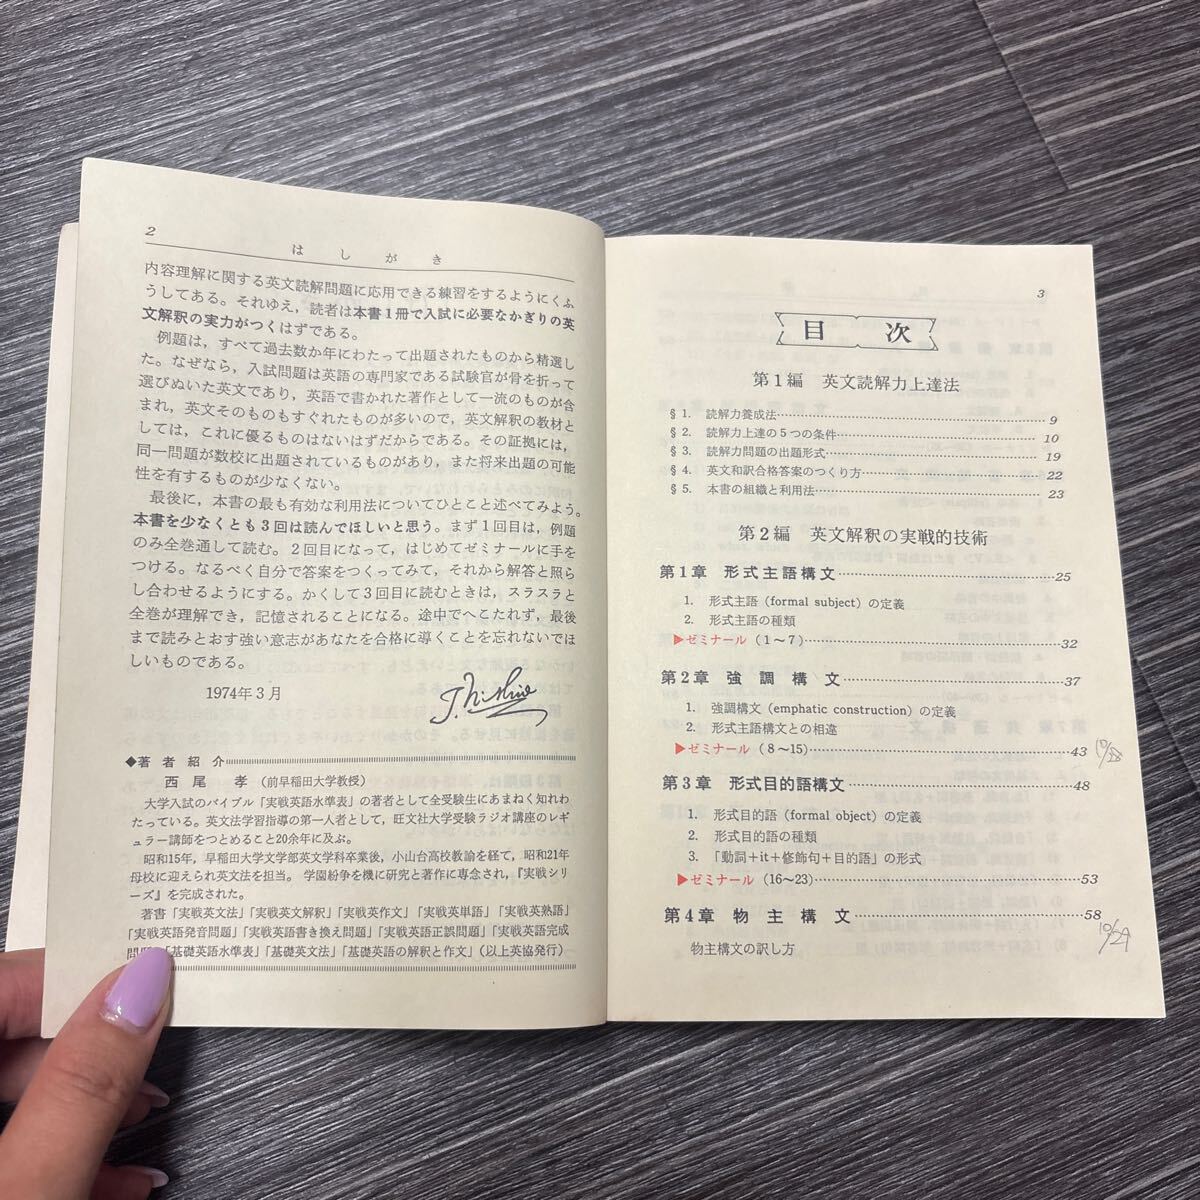 2
はしがき
内容理解に関する英文読解問題に応用できる練習をするようにくふ
うしてある。それゆえ，読者は本書1冊で入試に必要なかぎりの英
文解釈の実力がつくはずである。
例題は，すべて過去数か年にわたって出題されたものから精選し
た。なぜなら，入試問題は英語の専門家である試験官が骨を折って
選びぬいた英文であり，英語で書かれた著作として一流のものが含
まれ，英文そのものもすぐれたものが多いので，英文解釈の教材と
しては，これに優るものはないはずだからである。その証拠には，
同一問題が数校に出題されているものがあり，また将来出題の可能
性を有するものが少なくない。
最後に，本書の最も有効な利用法についてひとこと述べてみよう。
本書を少なくとも3回は読んでほしいと思う。まず1回目は，例題
のみ全巻通して読む。2回目になって，はじめてゼミナールに手を
つける。なるべく自分で答案をつくってみて，それから解答と照ら
し合わせるようにする。かくして3回目に読むときは，スラスラと
全巻が理解でき，記憶されることになる。途中でへこたれず，最後
まで読みとおす強い意志があなたを合格に導くことを忘れないでほ
しいものである。
1974年3月
J. Nishio
◆著者紹介
西尾 孝 （前早稲田大学教授）
大学入試のバイブル「実戦英語水準表」の著者として全受験生にあまねく知れわ
たっている。英文法学習指導の第一人者として，旺文社大学受験ラジオ講座のレギ
ュラー講師をつとめること20余年に及ぶ。
昭和15年，早稲田大学文学部英文学科卒業後，小山台高校教諭を経て，昭和21年
母校に迎えられ英文法を担当。 学園紛争を機に研究と著作に専念され，『実戦シリ
ーズ』を完成された。
著書「実戦英文法」「実戦英文解釈」「実戦英作文」「実戦英単語」「実戦英熟語」
「実戦英語発音問題」「実戦英語書き換え問題」「実戦英語正誤問題」「実戦英語完成
問題」「基礎英語水準表」「基礎英文法」「基礎英語の解釈と作文」（以上英協発行）
3
目次
第1編 英文読解力上達法
§ 1. 読解力養成法……9
§ 2. 読解力上達の5つの条件……10
§ 3. 読解力問題の出題形式……19
§ 4. 英文和訳合格答案のつくり方……22
§ 5. 本書の組織と利用法……23
第2編 英文解釈の実戦的技術
第1章 形式主語構文……25
1. 形式主語（formal subject）の定義
2. 形式主語の種類
▶ゼミナール（1～7）……32
第2章 強調構文……37
1. 強調構文（emphatic construction）の定義
2. 形式主語構文との相違
▶ゼミナール（8～15）……43
10/28
第3章 形式目的語構文……48
1. 形式目的語（formal object）の定義
2. 形式目的語の種類
3. 「動詞＋it＋修飾句＋目的語」の形式
▶ゼミナール（16～23）……53
第4章 物主構文……58
10/29
物主構文の訳し方